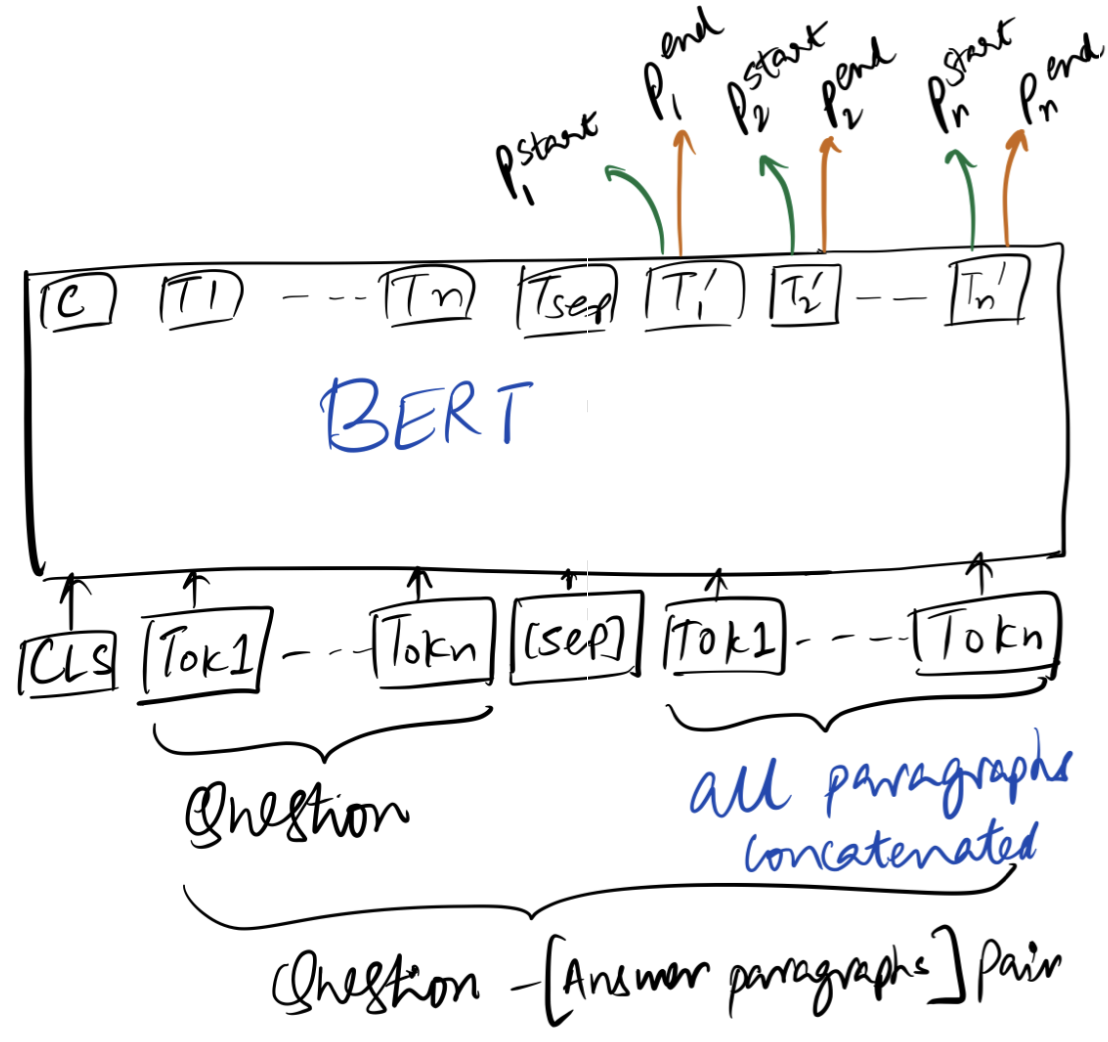 P₁ˢᵗᵃʳᵗ P₁ᵉⁿᵈ P₂ˢᵗᵃʳᵗ P₂ᵉⁿᵈ Pₙˢᵗᵃʳᵗ Pₙᵉⁿᵈ
C T1 ----- Tn Tsep T₁' T₂' --- Tn'
BERT
CLS Tok1 ----- Tokn [sep] Tok1 ----- Tokn
Question
all paragraphs
concatenated
Question - [Answer paragraphs] Pair